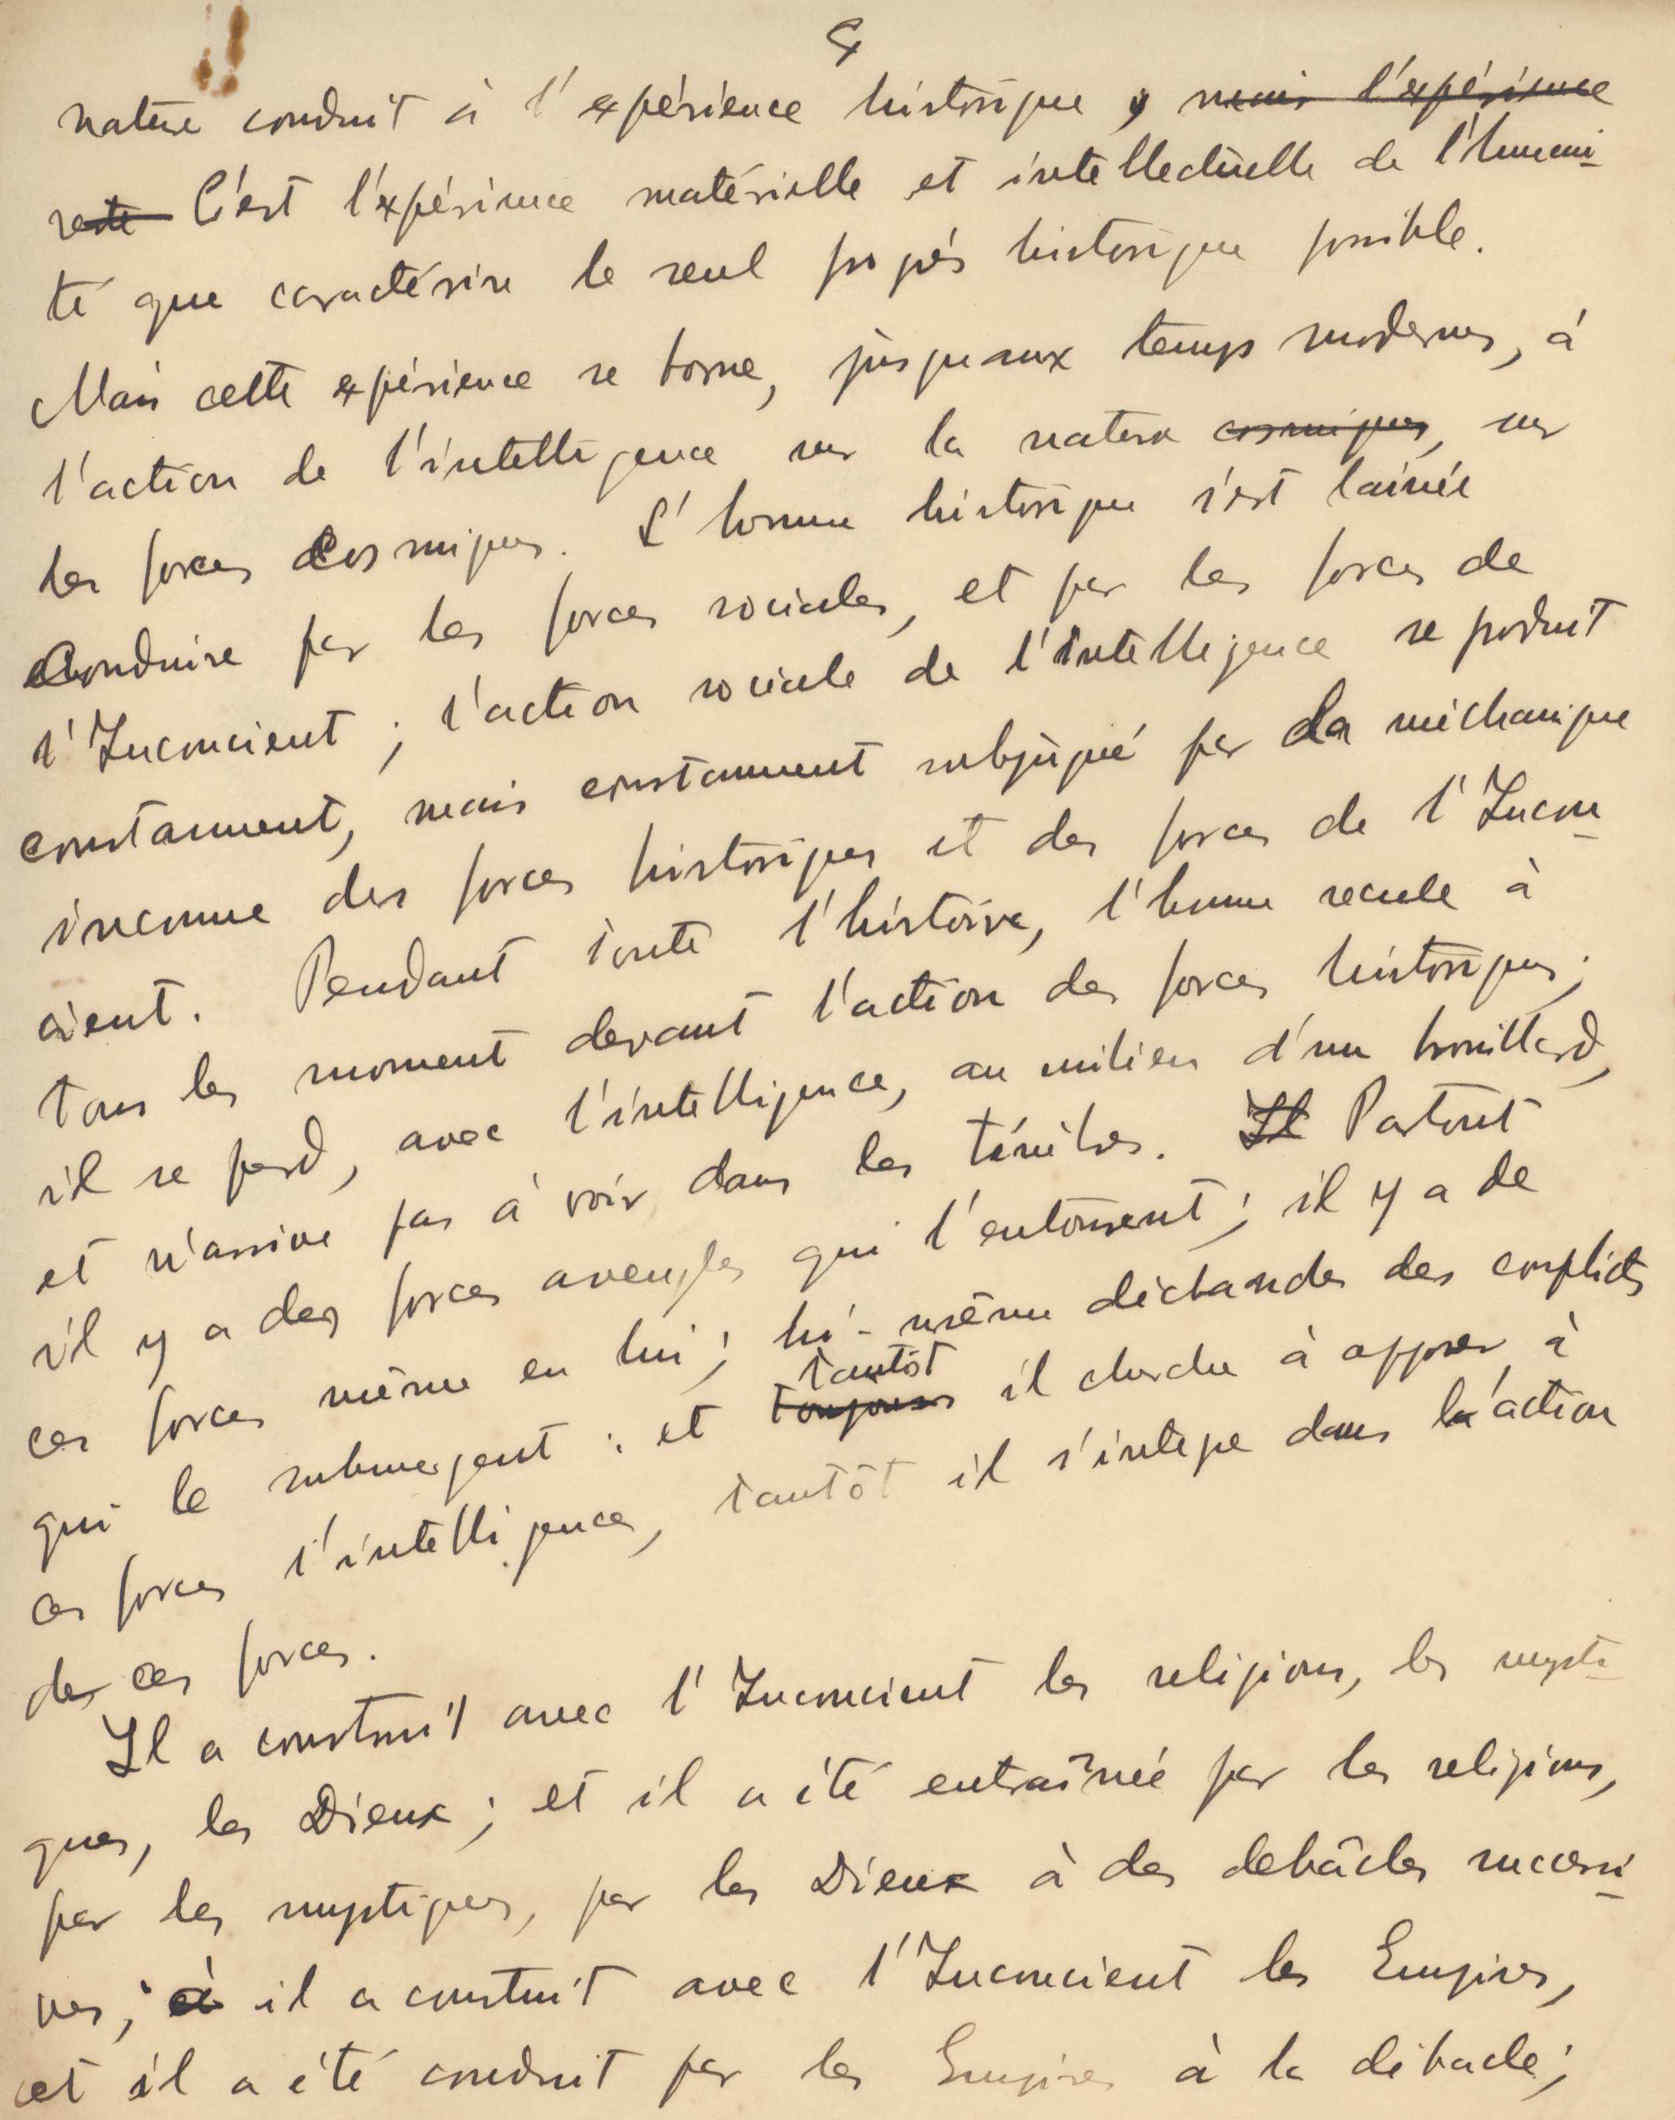 nature conduit à l'expérience historique, mais l'expérience
reste C'est l'expérience matérielle et intellectuelle de l'humani-
té que caractérise le seul progrès historique possible.
Mais cette expérience se borne, jusqu'aux temps modernes, à
l'action de l'intelligence sur la nature cosmiques, sur
les forces cosmiques. L'homme historique s'est laissée
conduire par les forces sociales, et par les forces de
l'Inconcient; l'action sociale de l'intelligence se produit
constanment, mais constanment subjugué par la méchanique
inconnue des forces historiques et des forces de l'Incon-
cient. Pendant toute l'histoire, l'homme recule à
tous les moment devant l'action des forces historiques;
il se perd, avec l'intelligence, au milieu d'un brouillard,
et n'arrive pas à voir dans les ténèbres. Il Partout
il y a des forces aveugles qui l'entourent; il y a de
ces forces même en lui; lui-même déchande des conflicts
qui le submergent; et toujours tantôt il cherche à opposer à
ces forces l'intelligence, tantôt il s'intègre dans l'action
de ces forces.
Il a construit avec l'Inconcient les religions, les mysti-
ques, les Dieux; et il a été entraînée par les religions,
par les mystiques, par les Dieux à des debâcles successi-
ves; il a construit avec l'Inconcient les Empires,
et il a été conduit par les Empires à la débacle;